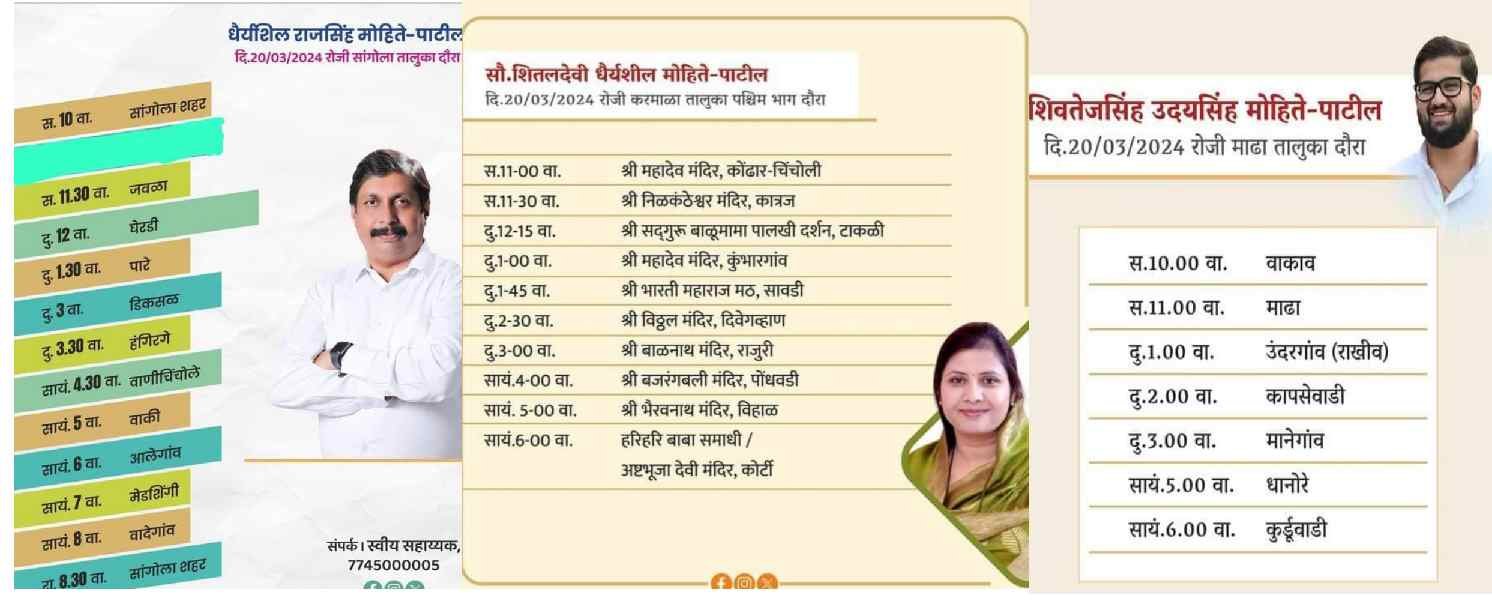 धैर्यशिल राजसिंह मोहिते-पाटील
दि.20/03/2024 रोजी सांगोला तालुका दौरा
स. 10 वा. सांगोला शहर
स. 11.30 वा. जवळा
दु. 12 वा. घेरडी
दु. 1.30 वा. पारे
दु. 3 वा. डिकसळ
दु. 3.30 वा. हंगिरगे
सायं. 4.30 वा. वाणीचिंचोले
सायं. 5 वा. वाकी
सायं. 6 वा. आलेगांव
सायं. 7 वा. मेडशिंगी
सायं. 8 वा. वादेगांव
रा. 8.30 वा. सांगोला शहर
संपर्क। स्वीय सहाय्यक,
7745000005
सौ.शितलदेवी धैर्यशील मोहिते-पाटील
दि.20/03/2024 रोजी करमाळा तालुका पश्चिम भाग दौरा
स.11-00 वा. श्री महादेव मंदिर, कोंढार-चिंचोली
स.11-30 वा. श्री निळकंठेश्वर मंदिर, कात्रज
दु.12-15 वा. श्री सद्‌गुरू बाळूमामा पालखी दर्शन, टाकळी
दु.1-00 वा. श्री महादेव मंदिर, कुंभारगांव
दु.1-45 वा. श्री भारती महाराज मठ, सावडी
दु.2-30 वा. श्री विठ्ठल मंदिर, दिवेगव्हाण
दु.3-00 वा. श्री बाळनाथ मंदिर, राजुरी
सायं.4-00 वा. श्री बजरंगबली मंदिर, पोंधवडी
सायं. 5-00 वा. श्री भैरवनाथ मंदिर, विहाळ
सायं.6-00 वा. हरिहरि बाबा समाधी /
अष्टभूजा देवी मंदिर, कोर्टी
शिवतेजसिंह उदयसिंह मोहिते-पाटील
दि.20/03/2024 रोजी माढा तालुका दौरा
स.10.00 वा. वाकाव
स.11.00 वा. माढा
दु.1.00 वा. उंदरगांव (राखीव)
दु.2.00 वा. कापसेवाडी
दु.3.00 वा. मानेगांव
सायं.5.00 वा. धानोरे
सायं.6.00 वा. कुर्डूवाडी